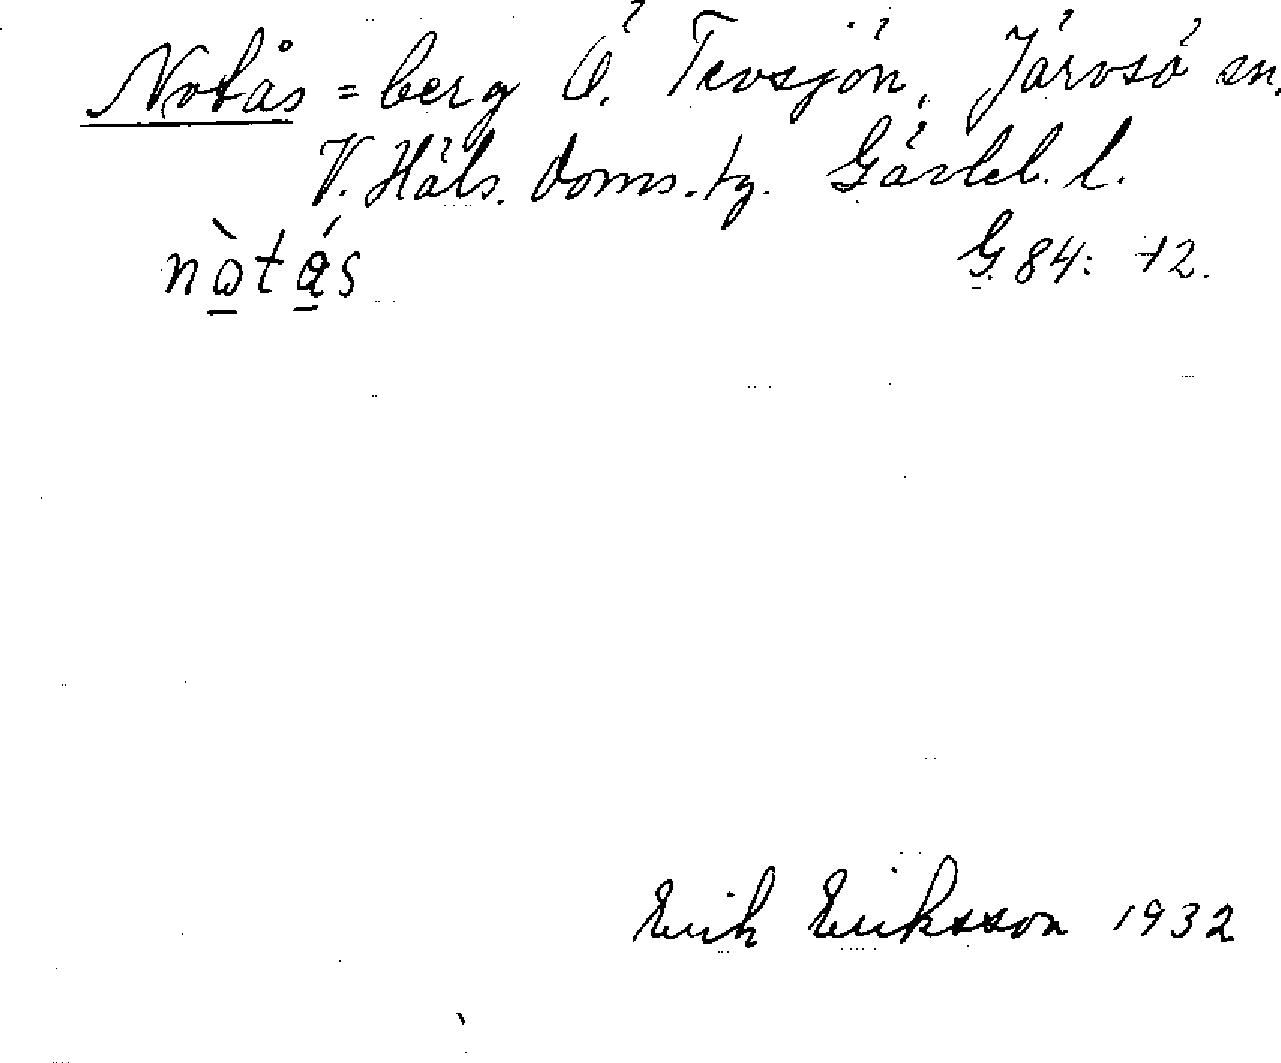 Notås = berg Ö. Tevsjön, Järvsö sn,
V. Häls. doms. tg. Gävleb. l.
nὼtǻs G. 84: 72.
Erik Eriksson 1932